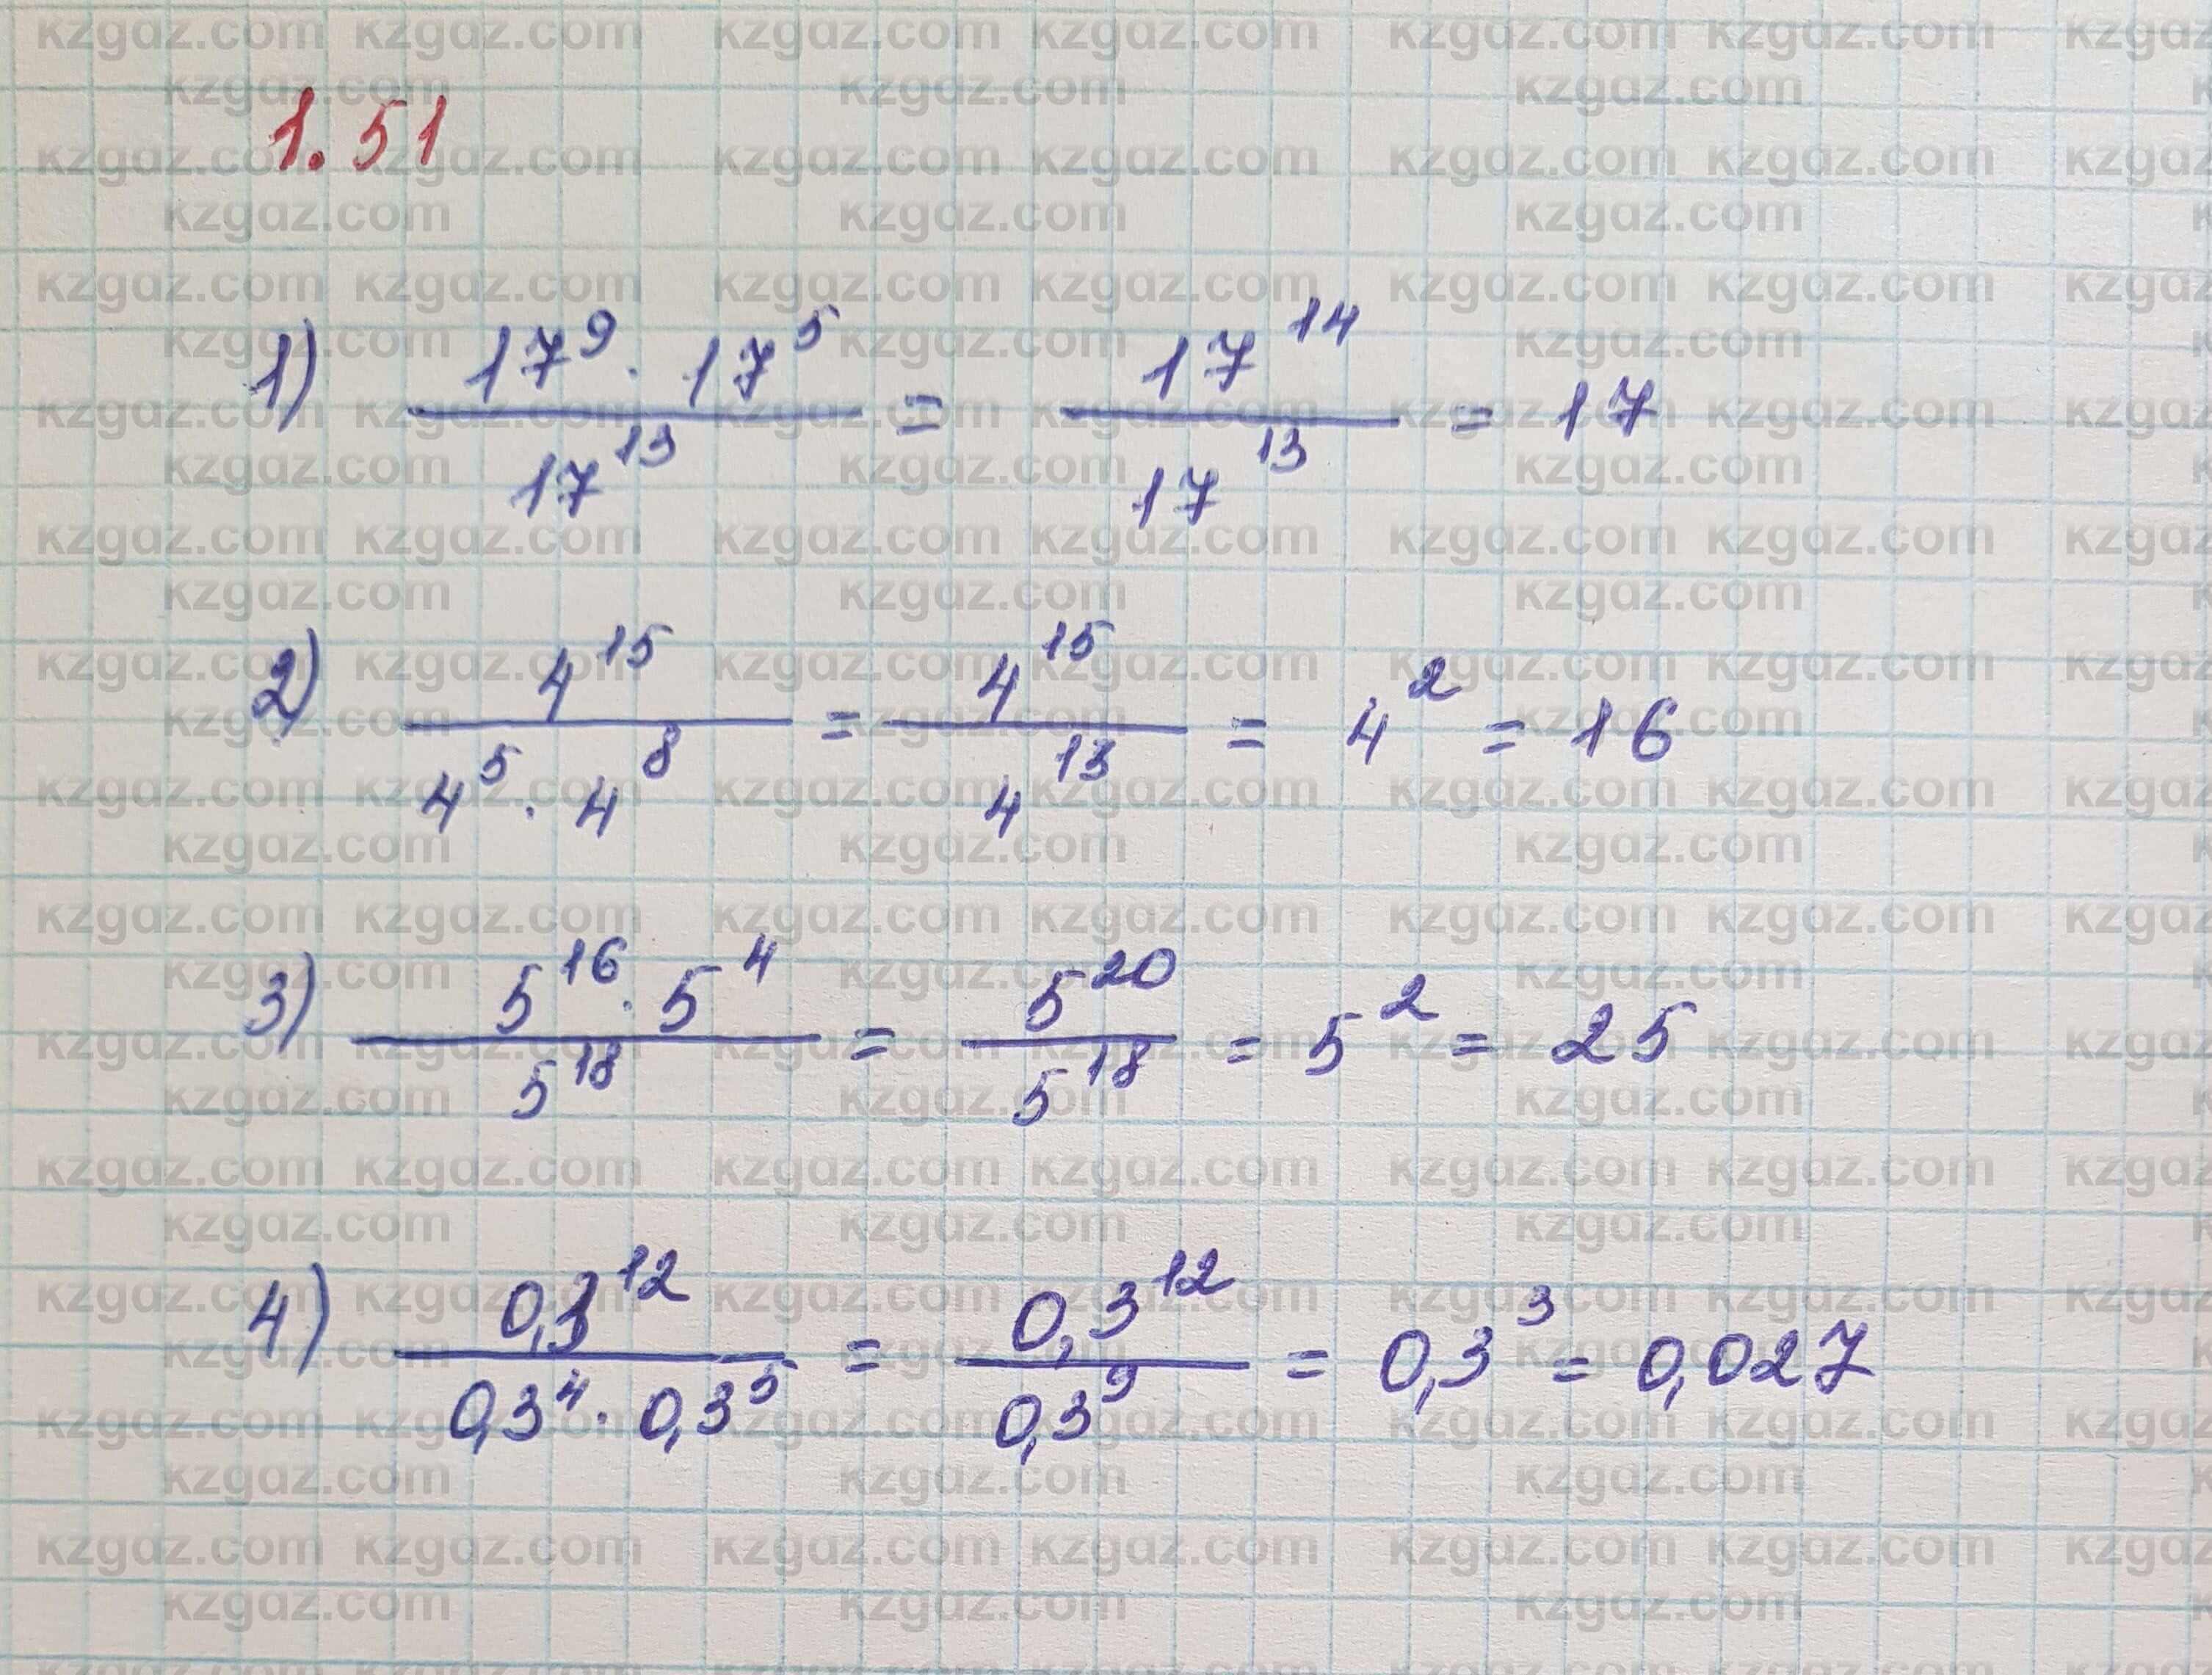 1.51
1) 17^9 · 17^5 / 17^13 = 17^14 / 17^13 = 17
2) 4^15 / 4^5 · 4^8 = 4^15 / 4^13 = 4^2 = 16
3) 5^16 · 5^4 / 5^18 = 5^20 / 5^18 = 5^2 = 25
4) 0,3^12 / 0,3^4 · 0,3^5 = 0,3^12 / 0,3^9 = 0,3^3 = 0,027
kzgaz.com